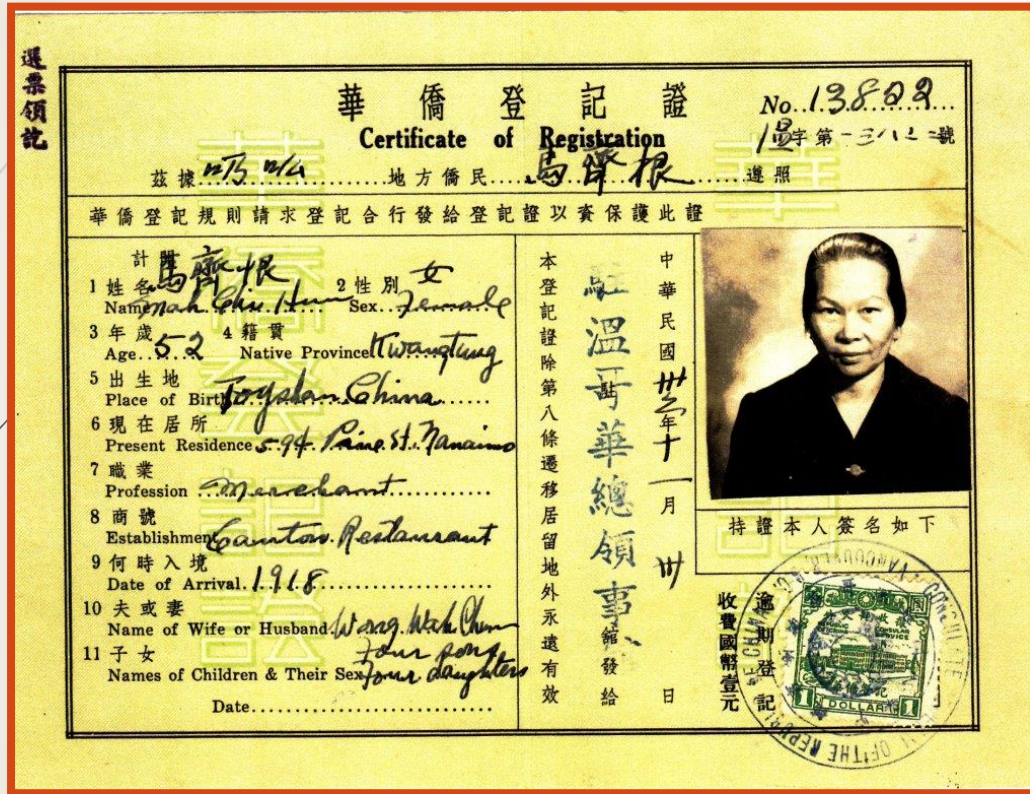 選票領訖
華僑登記證
Certificate of Registration
No. 13822
溫字第一三八二二號
茲據 地方僑民 馬齊根 遵照
華僑登記規則請求登記合行發給登記證以資保護此證
計開
1 姓名 馬齊根 2 性別 女
Name Mah Sex Female
3 年歲 4 籍貫
Age 52 Native Province Kwangtung
5 出生地
Place of Birth Toyshan China
6 現在居所
Present Residence 594 Pine St. Nanaimo
7 職業
Profession Merchant
8 商號
Establishment Canton Restaurant
9 何時入境
Date of Arrival 1918
10 夫或妻
Name of Wife or Husband Wong Wah
11 子女 Four sons
Names of Children & Their Sex Four daughters
Date
本登記證除第八條遷移居留地外永遠有效
駐溫哥華總領事館發給
中華民國卅三年十一月卅日
持證本人簽名如下
逾期登記
收費國幣壹元
CONSULAR SERVICE
1 DOLLAR 1
CONSULATE OF THE REPUBLIC OF CHINA VANCOUVER